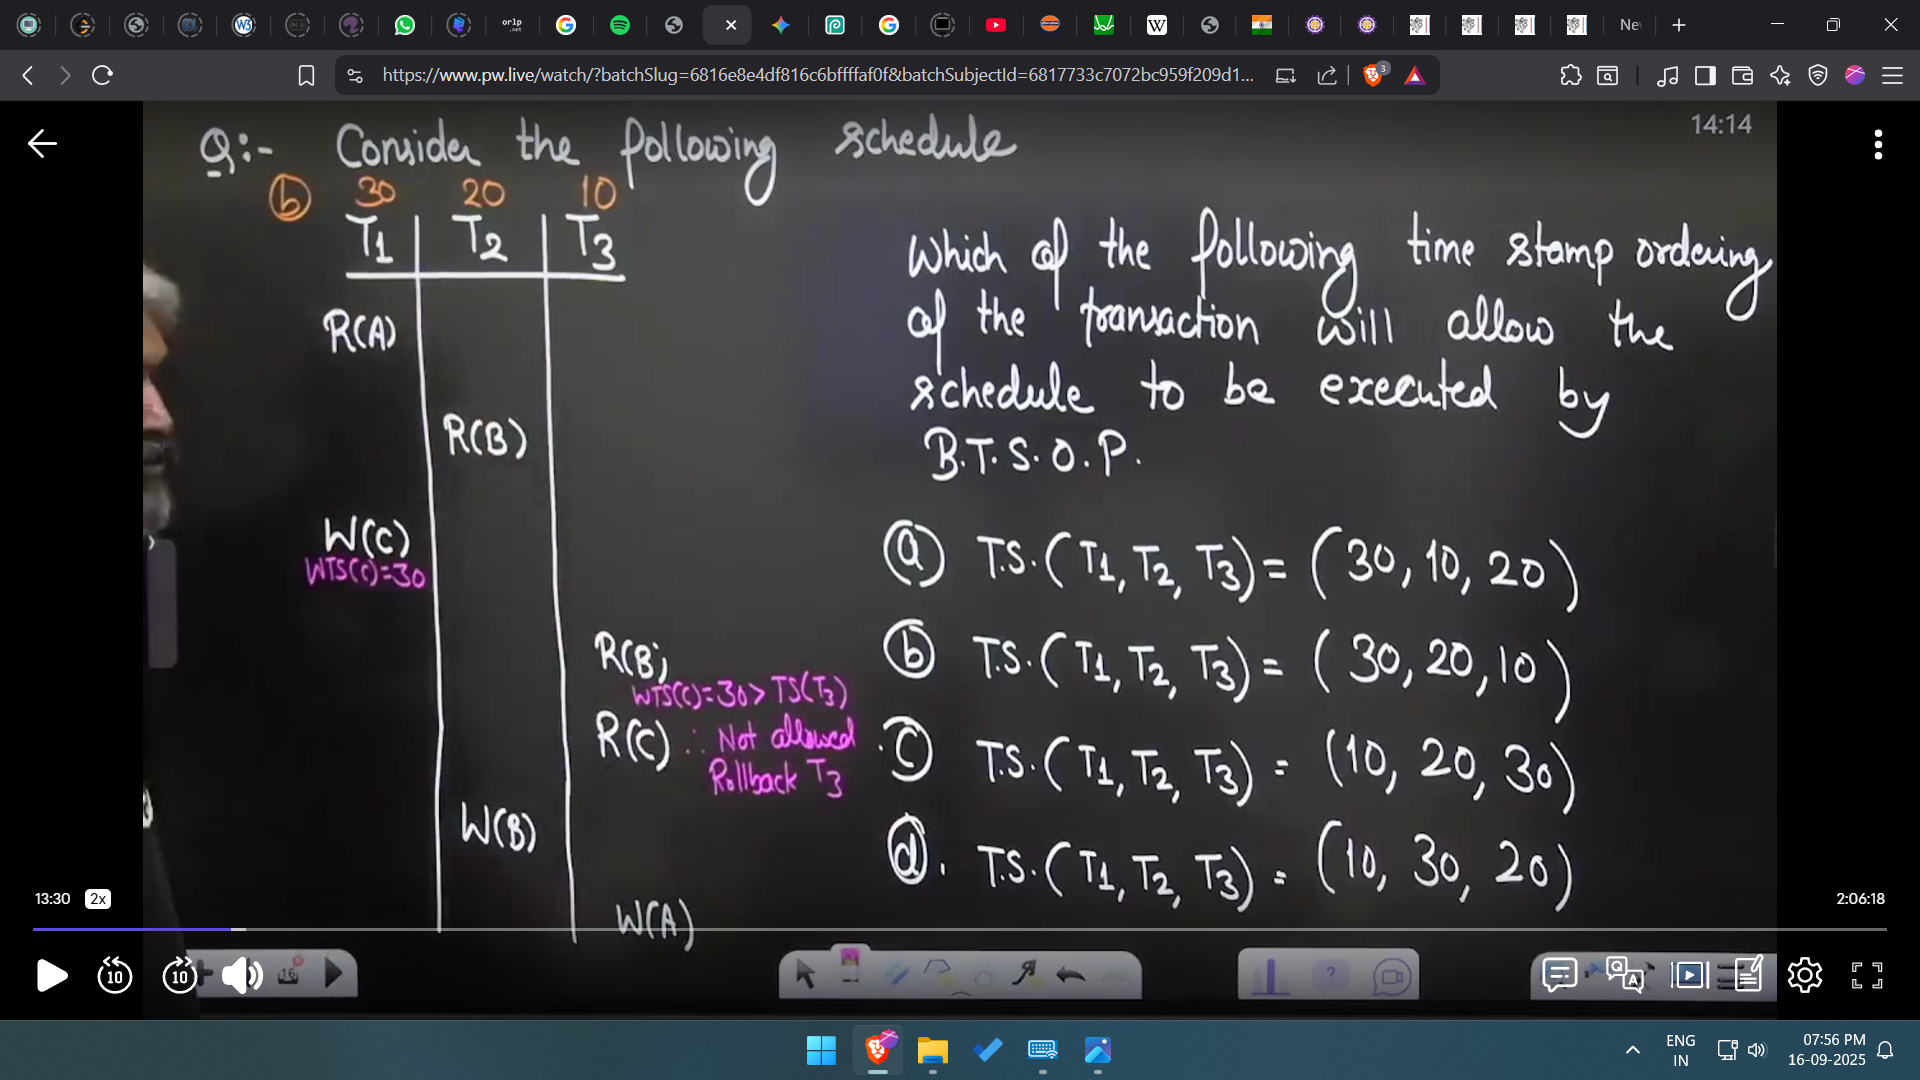 New
https://www.pw.live/watch/?batchSlug=6816e8e4df816c6bffffaf0f&batchSubjectId=6817733c7072bc959f209d1...
3
14:14
Q:- Consider the following schedule
b 30 20 10
T1 T2 T3
R(A)
R(B)
W(C)
WTS(C)=30
R(B)
WTS(C)=30 > TS(T3)
R(C) ∴ Not allowed
Rollback T3
W(B)
W(A)
Which of the following time stamp ordering
of the transaction will allow the
schedule to be executed by
B.T.S.O.P.
a T.S.(T1, T2, T3) = (30, 10, 20)
b T.S.(T1, T2, T3) = (30, 20, 10)
c T.S.(T1, T2, T3) = (10, 20, 30)
d. T.S.(T1, T2, T3) = (10, 30, 20)
13:30 2x
2:06:18
10 10
16
ENG
IN
07:56 PM
16-09-2025